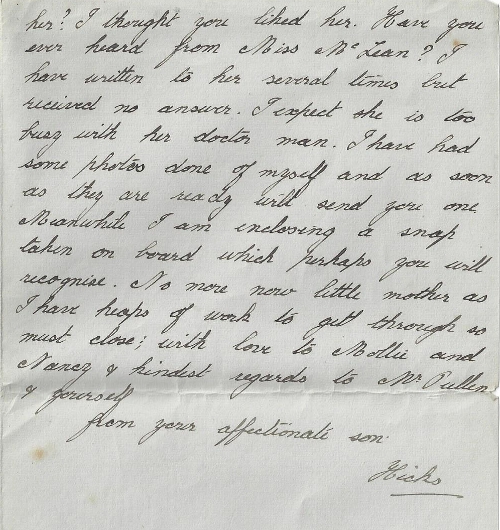 her? I thought you liked her. Have you
ever heard from Miss McLean? I
have written to her several times but
received no answer. I expect she is too
busy with her doctor man. I have had
some photos done of myself and as soon
as they are ready will send you one
Meanwhile I am enclosing a snap
taken on board which perhaps you will
recognise. No more now little mother as
I have heaps of work to get through so
must close; with love to Mollie and
Nancy & kindest regards to Mr Pullen
& yourself
from your affectionate son
Hicks